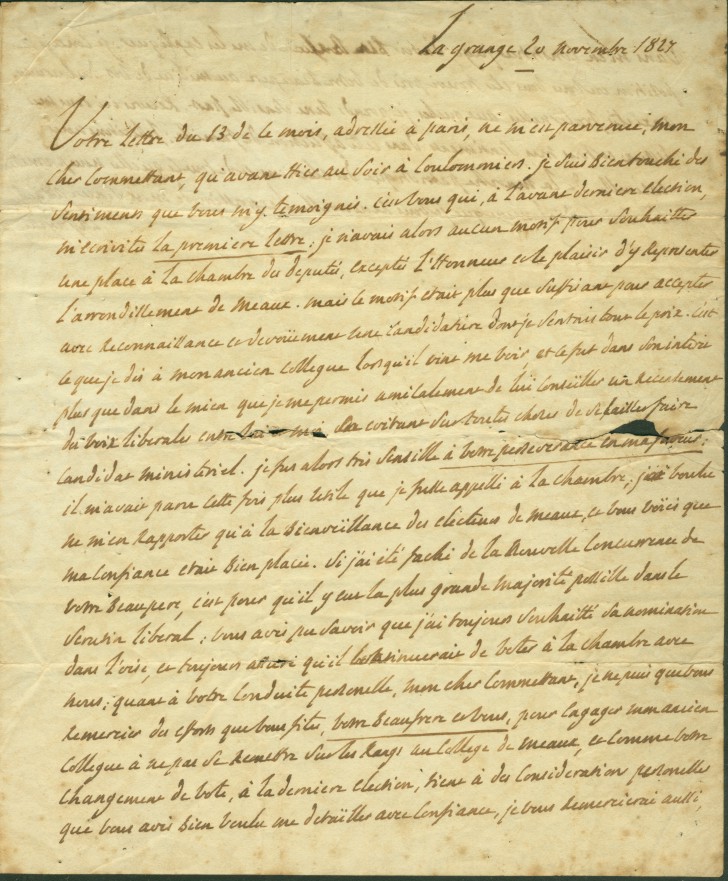 La grange 20 novembre 1827
Votre lettre du 13 de le mois, adressée à paris, ne m'est parvenue, mon
cher Commettant, qu'avant hier au soir à Coulommiers. je suis bien touché des
sentiments que vous m'y temoignés. c'est vous qui, à l'avant derniere election,
m'ecrivites la premiere lettre; je n'avais alors aucun motif pour souhaitter
une place à la chambre des deputés, excepté l'honneur et le plaisir d'y representer
l'arrondissement de Meaux. mais le motif etait plus que suffisant pour accepter
avec reconnaissance et devoüement une candidature dont je sentais tout le prix. c'est
ce que je dis à mon ancien collegue lorsqu'il vint me voir et ce fut dans son interêt
plus que dans le mien que je me permis amicalement de lui conseiller un recensement
des voix liberales entre lui et moi evitant sur toutes choses de se laisser faire
candidat ministeriel. je fus alors très sensible à votre perseverance en ma faveur;
il m'avait paru cette fois plus utile que je fusse appellé à la chambre; j'ai voulu
ne m'en rapporter qu'à la bienveillance des electeurs de meaux, et vous voiés que
ma confiance etait bien placée. si j'ai été faché de la nouvelle concurrence de
votre beaupere, c'est pour qu'il y eut la plus grande majorité possible dans le
scrutin liberal; vous avés pu savoir que j'ai toujours souhaitté sa nomination
dans l'oise, et toujours assuré qu'il continuerait de voter à la chambre avec
nous; quant à votre conduite personelle, mon cher Commettant, je ne puis que vous
remercier des efforts que vous fites, votre beaufrere et vous, pour engager mon ancien
collegue à ne pas se remettre sur les rangs au college de meaux, et comme votre
changement de vote, à la derniere election, tient à des considerations personelles
que vous avés bien voulu me detailler avec confiance, je vous remercierai aussi,